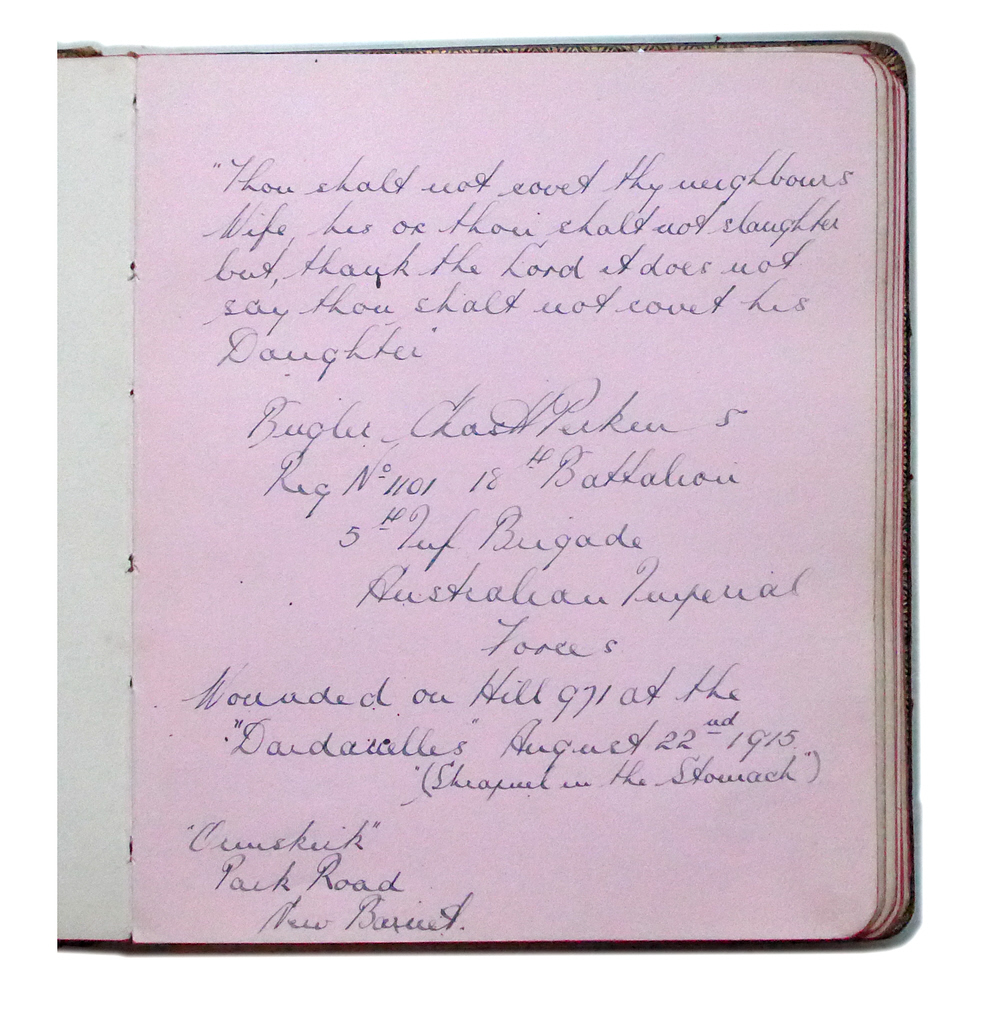 "Thou shalt not covet thy neighbours
Wife, his ox thou shalt not slaughter
but, thank the Lord it does not
say thou shalt not covet his
Daughter"
Bugler Chas H Perkins
Reg No 1101 18th Battalion
5th Inf Brigade
Australian Imperial
Forces
Wounded on Hill 971 at the
"Dardanelles" August 22nd 1915.
"(Shrapnel in the Stomach")
"Ormskirk"
Park Road
New Barnet.